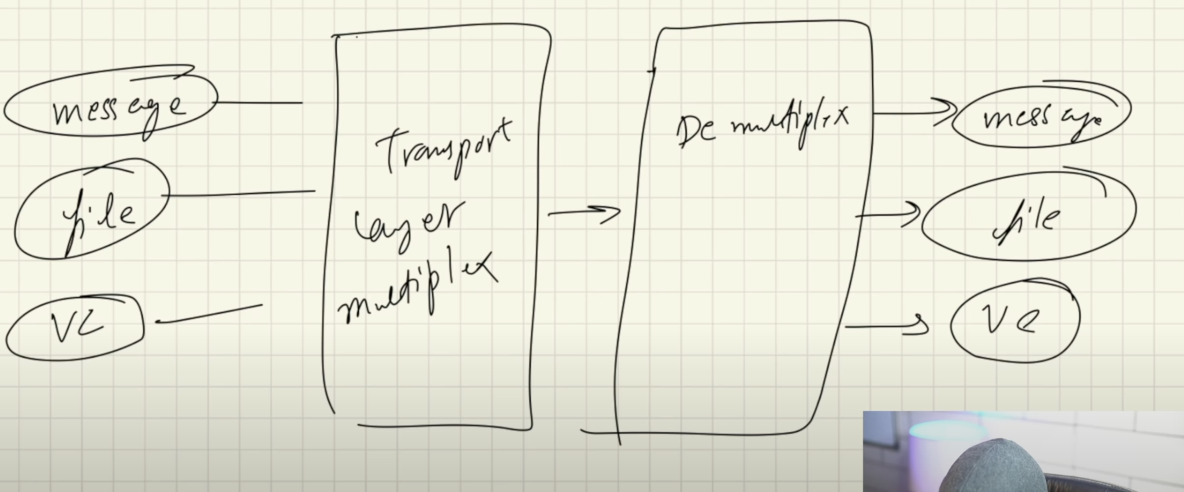 message
file
VC
Transport
layer
multiplex
Demultiplex
message
file
VC